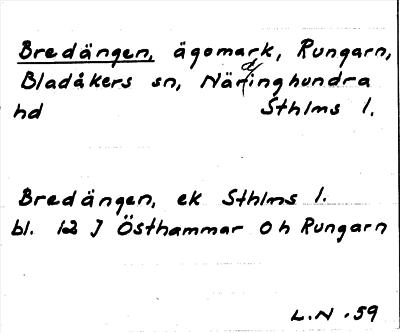 Bredängen, ägomark, Rungarn,
Bladåkers sn, Närdinghundra
hd Sthlms l.
Bredängen, ek Sthlms l.
bl. 12 J Östhammar Oh Rungarn
L.N. 59